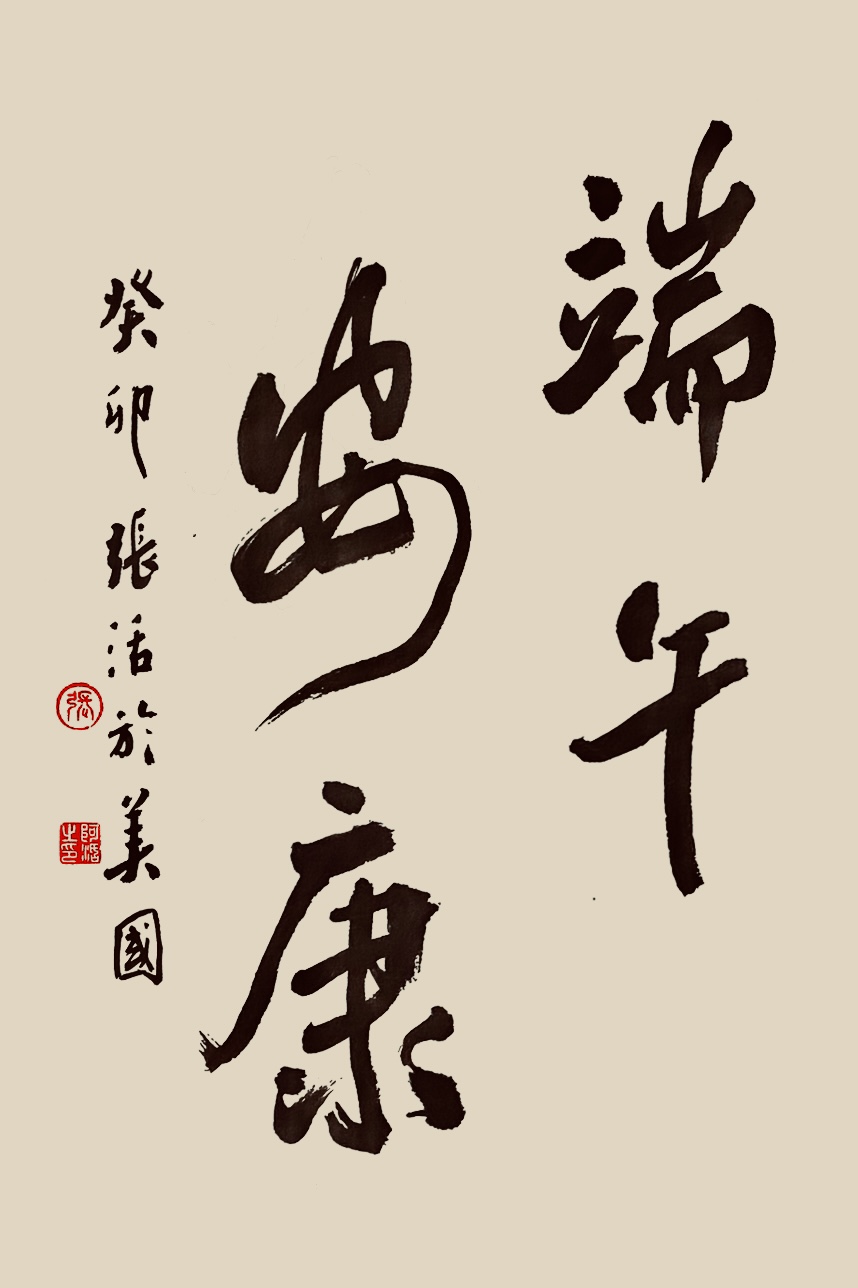 端午
安康
癸卯張活於美國
張
阿活之印